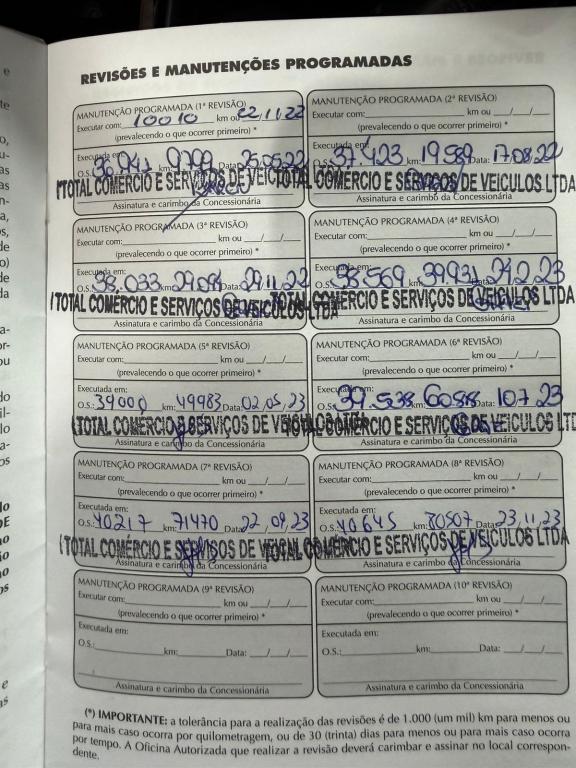 REVISÕES E MANUTENÇÕES PROGRAMADAS
MANUTENÇÃO PROGRAMADA (1ª REVISÃO)
Executar com: 10010 km ou 22/11/22
(prevalecendo o que ocorrer primeiro) *
Executada em:
O.S.: 36.941 km: 9799 Data: 25.05.22
TOTAL COMÉRCIO E SERVIÇOS DE VEICULOS LTDA
Assinatura e carimbo da Concessionária
MANUTENÇÃO PROGRAMADA (2ª REVISÃO)
Executar com: km ou / /
(prevalecendo o que ocorrer primeiro) *
Executada em:
O.S.: 37.423 km: 19589 Data: 17.08.22
TOTAL COMÉRCIO E SERVIÇOS DE VEICULOS LTDA
Assinatura e carimbo da Concessionária
MANUTENÇÃO PROGRAMADA (3ª REVISÃO)
Executar com: km ou / /
(prevalecendo o que ocorrer primeiro) *
Executada em:
O.S.: 38.033 km: Data: 29.11.22
TOTAL COMÉRCIO E SERVIÇOS DE VEICULOS LTDA
Assinatura e carimbo da Concessionária
MANUTENÇÃO PROGRAMADA (4ª REVISÃO)
Executar com: km ou / /
(prevalecendo o que ocorrer primeiro) *
Executada em:
O.S.: 38.569 km: 39.931 Data:
TOTAL COMÉRCIO E SERVIÇOS DE VEICULOS LTDA
Assinatura e carimbo da Concessionária
MANUTENÇÃO PROGRAMADA (5ª REVISÃO)
Executar com: km ou / /
(prevalecendo o que ocorrer primeiro) *
Executada em:
O.S.: 39000 km: 49983 Data: 02/05/23
TOTAL COMÉRCIO E SERVIÇOS DE VEICULOS LTDA
Assinatura e carimbo da Concessionária
MANUTENÇÃO PROGRAMADA (6ª REVISÃO)
Executar com: km ou / /
(prevalecendo o que ocorrer primeiro) *
Executada em:
O.S.: 39.538 km: Data: 107.23
TOTAL COMÉRCIO E SERVIÇOS DE VEICULOS LTDA
Assinatura e carimbo da Concessionária
MANUTENÇÃO PROGRAMADA (7ª REVISÃO)
Executar com: km ou / /
(prevalecendo o que ocorrer primeiro) *
Executada em:
O.S.: 40217 km: 71470 Data: 22/09/23
TOTAL COMÉRCIO E SERVIÇOS DE VEICULOS LTDA
Assinatura e carimbo da Concessionária
MANUTENÇÃO PROGRAMADA (8ª REVISÃO)
Executar com: km ou / /
(prevalecendo o que ocorrer primeiro) *
Executada em:
O.S.: 40645 km: 80507 Data: 23/11/23
TOTAL COMÉRCIO E SERVIÇOS DE VEICULOS LTDA
Assinatura e carimbo da Concessionária
MANUTENÇÃO PROGRAMADA (9ª REVISÃO)
Executar com: km ou / /
(prevalecendo o que ocorrer primeiro) *
Executada em:
O.S.: km: Data: / /
Assinatura e carimbo da Concessionária
MANUTENÇÃO PROGRAMADA (10ª REVISÃO)
Executar com: km ou / /
(prevalecendo o que ocorrer primeiro) *
Executada em:
O.S.: km: Data: / /
Assinatura e carimbo da Concessionária
(*) IMPORTANTE: a tolerância para a realização das revisões é de 1.000 (um mil) km para menos ou
para mais caso ocorra por quilometragem, ou de 30 (trinta) dias para menos ou para mais caso ocorra
por tempo. A Oficina Autorizada que realizar a revisão deverá carimbar e assinar no local correspon-
dente.